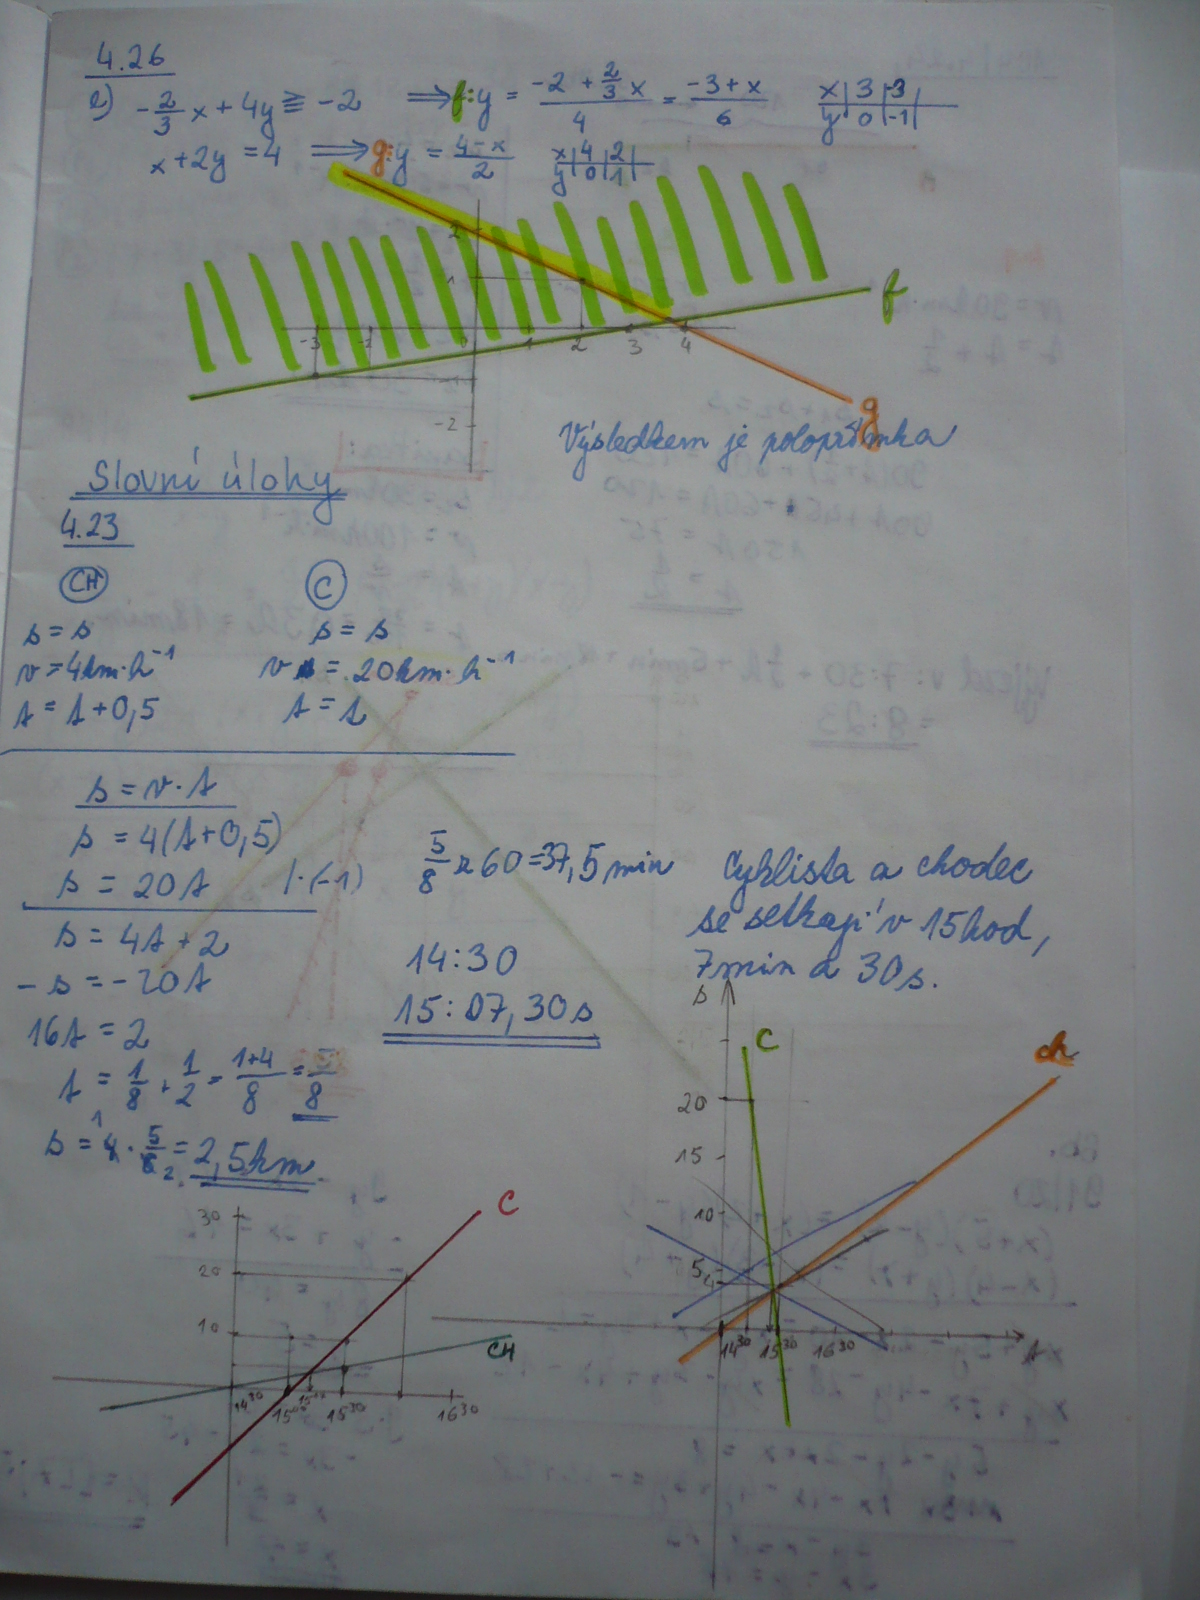 4.26
e) -2/3 x + 4y ≧ -2 ⟹ f: y = (-2 + 2/3 x)/4 = (-3 + x)/6 x | 3 | -3 |
y | 0 | -1 |
x + 2y = 4 ⟹ g: y = (4 - x)/2 x | 4 | 2 |
y | 0 | 1 |
2
1
f
-3 -2 0 1 2 3 4
-1
g
-2
Výsledkem je polopřímka
Slovní úlohy
4.23
CH C
s = s s = s
v = 4km·h⁻¹ v = 20km·h⁻¹
t = t + 0,5 t = t
s = v · t
s = 4(t + 0,5)
s = 20t /·(-1)
s = 4t + 2
-s = -20t
16t = 2
t = 1/8 + 1/2 = (1+4)/8 = 5/8
s = 4 · 5/8 = 2,5km
5/8 · 60 = 37,5 min
14:30
15:07,30s
Cyklista a chodec
se setkají v 15hod,
7min a 30s.
s
C
ch
20
15
10
5
4
14³⁰ 15³⁰ 16³⁰ t
C
30
20
10
CH
14³⁰ 15⁰⁰ 15³⁰ 16³⁰